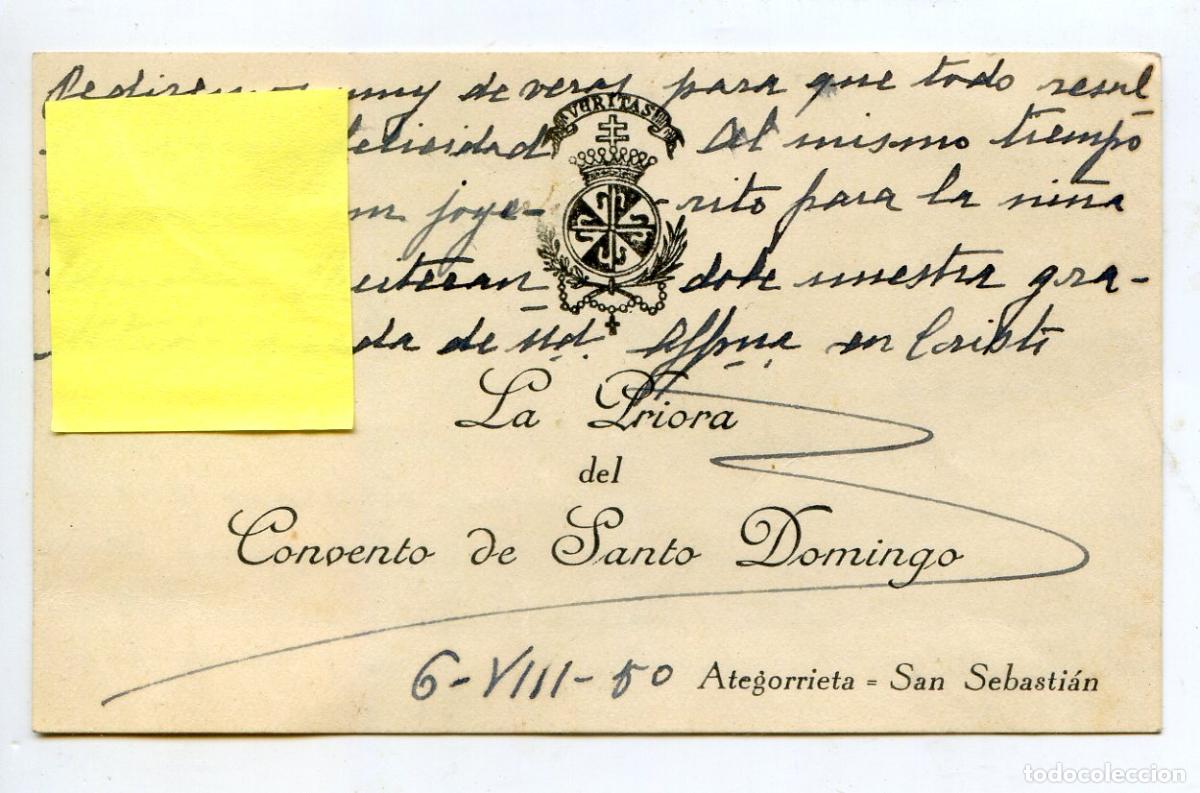 Pediremos muy de veras para que todo resul
VERITAS
elicidad Al mismo tiempo
joye- rito para la niña
nuestra gra-
da de Ud. Affma en Cristo
La Priora
del
Convento de Santo Domingo
6-VIII-50 Ategorrieta = San Sebastián
todocoleccion